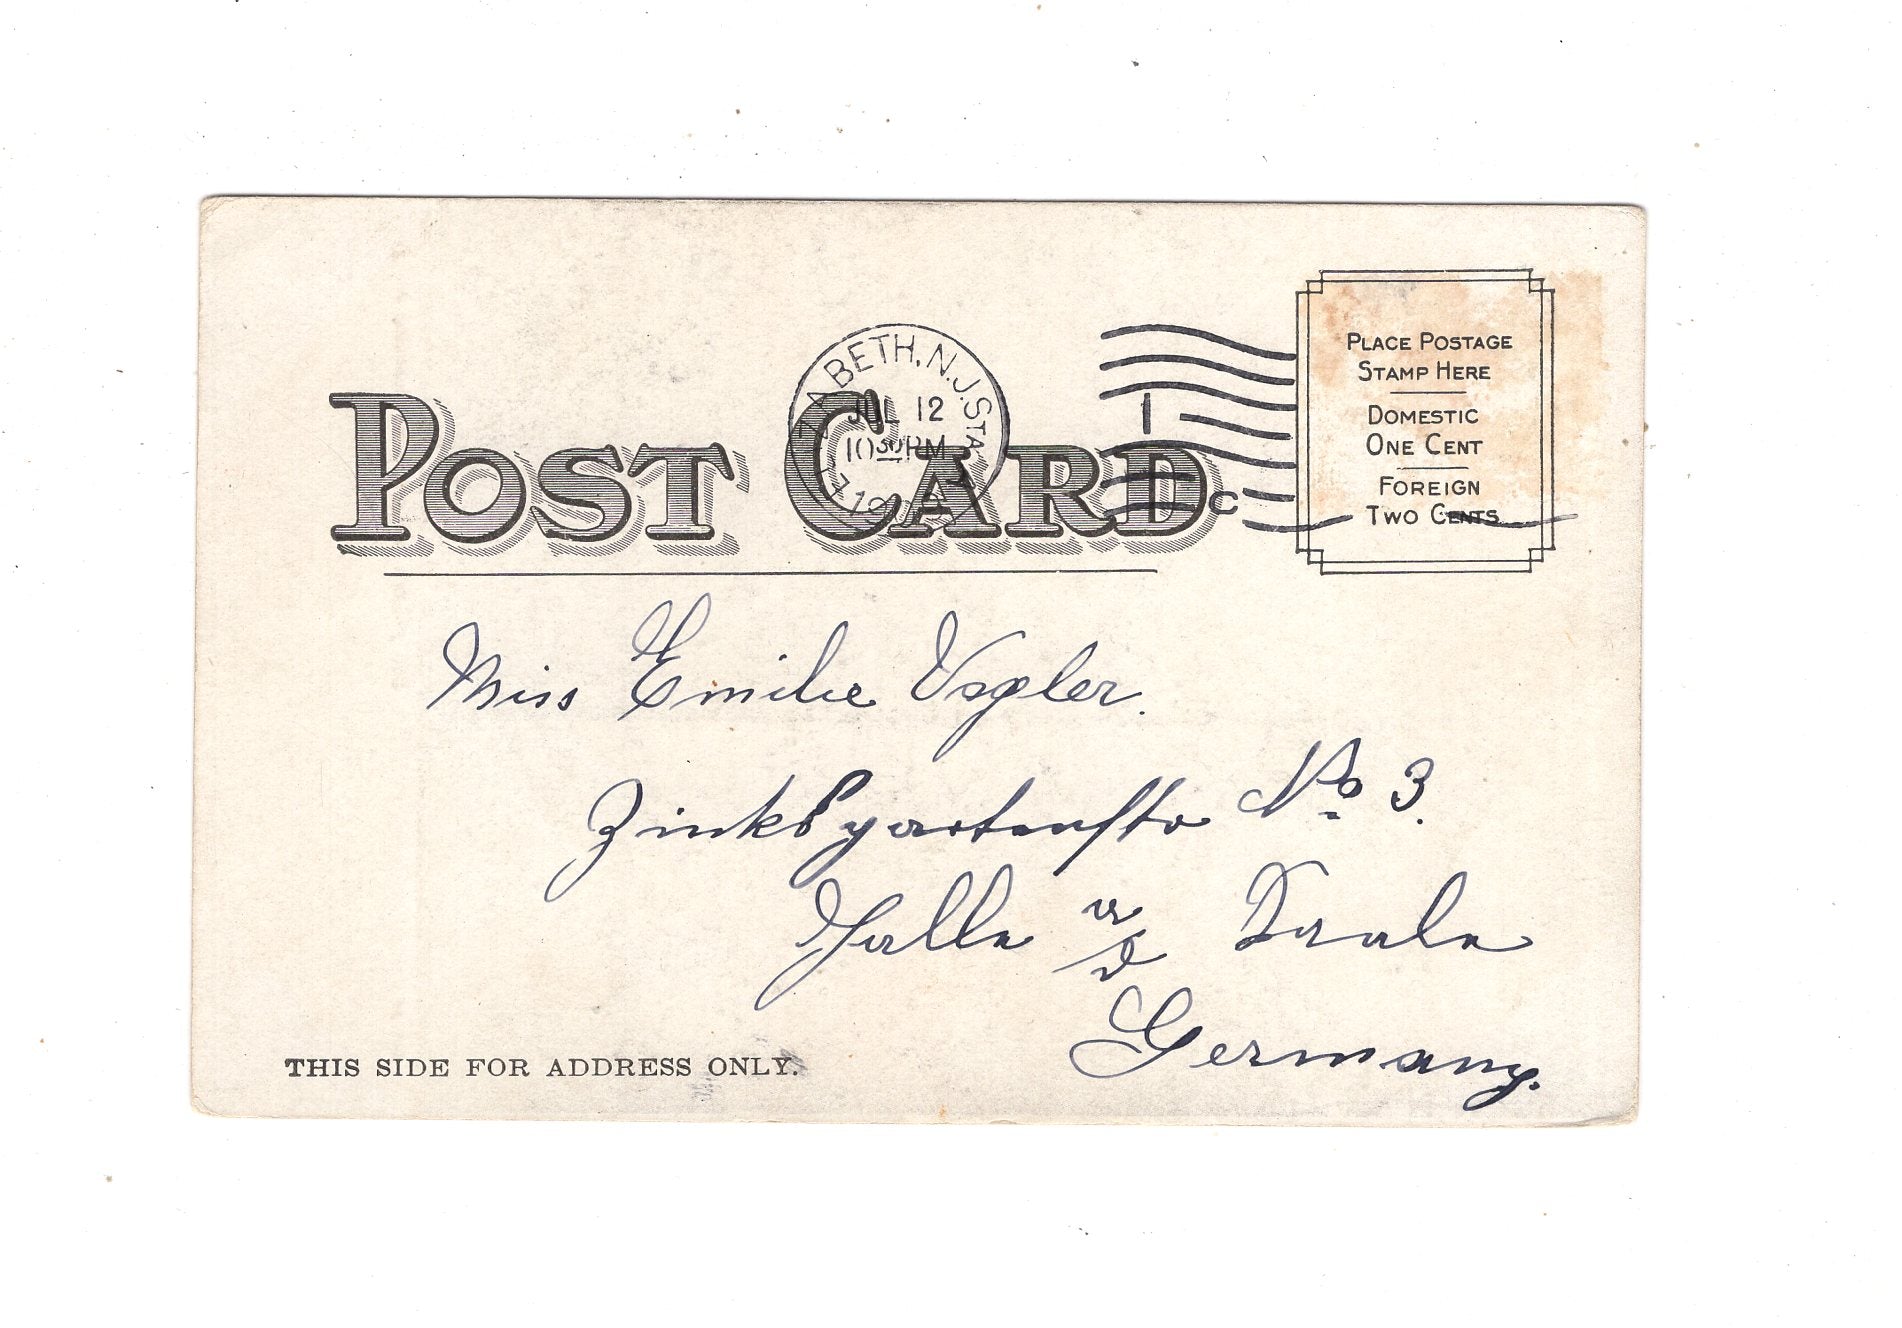 POST CARD
ELIZABETH, N.J. STA.
JUL 12
10 30 PM
1
C
PLACE POSTAGE
STAMP HERE
DOMESTIC
ONE CENT
FOREIGN
TWO CENTS
Miss Emilie
No 3.
Halle a/S Saale
Germany.
THIS SIDE FOR ADDRESS ONLY.